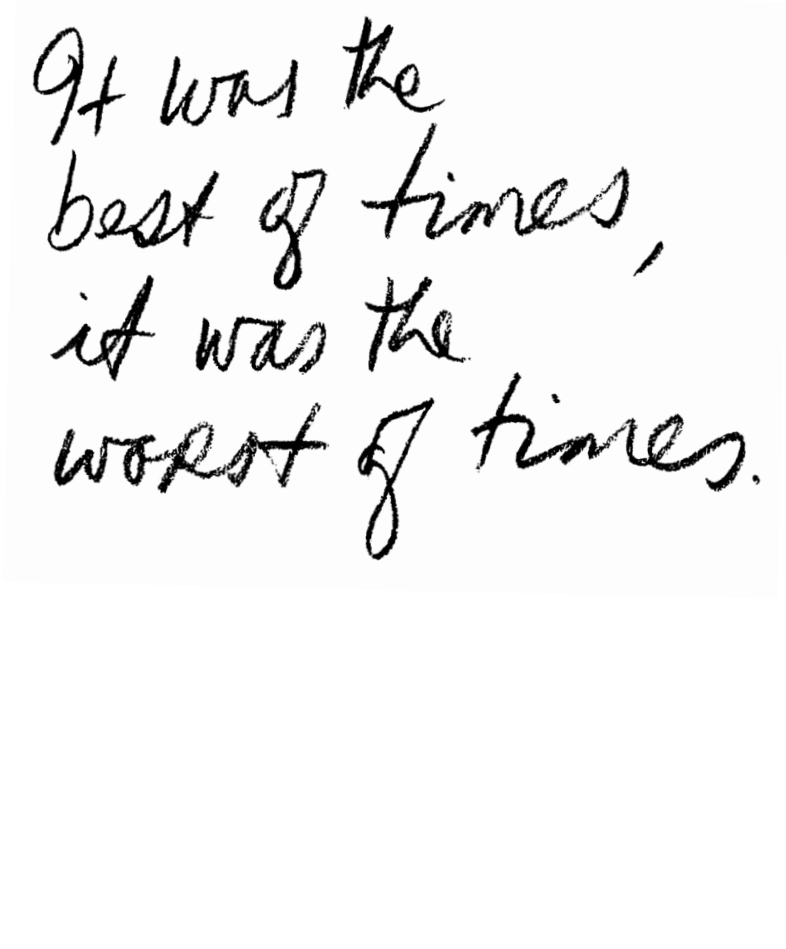 It was the
best of times,
it was the
worst of times.